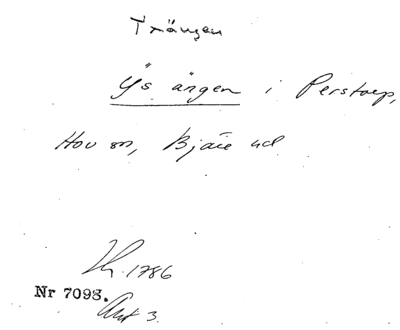 Trängen
Ys ängen i Perstorp,
Hov sn, Bjäre hd
1786
Nr 7098.
Akt 3